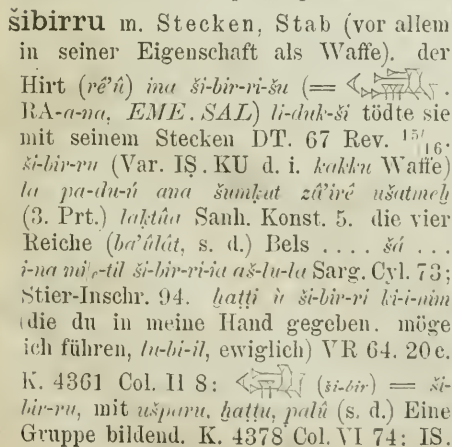 šibirru m. Stecken, Stab (vor allem
in seiner Eigenschaft als Waffe). der
Hirt (rê'û) ina ši-bir-ri-šu (=
RA-a-na, EME.SAL) li-duk-ši tödte sie
mit seinem Stecken DT. 67 Rev. 15/16.
ši-bir-ru (Var. IṢ.KU d. i. kakku Waffe)
la pa-du-ú ana šumḳut zâ'irê ušatmeḫ
(3. Prt.) laktûa Sanh. Konst. 5. die vier
Reiche (ba'ûlât, s. d.) Bels .... šá ...
i-na ši-bir-ri-ia aš-lu-la Sarg. Cyl. 73;
Stier-Inschr. 94. ḫaṭṭi ù ši-bir-ri ki-i-nim
(die du in meine Hand gegeben. möge
ich führen, lu-bi-il, ewiglich) VR 64. 20 c.
K. 4361 Col. II 8: (ši-bir) = ši-
bir-ru, mit ušparu, ḫaṭṭu, palû (s. d.) Eine
Gruppe bildend. K. 4378 Col. VI 74: IṢ.